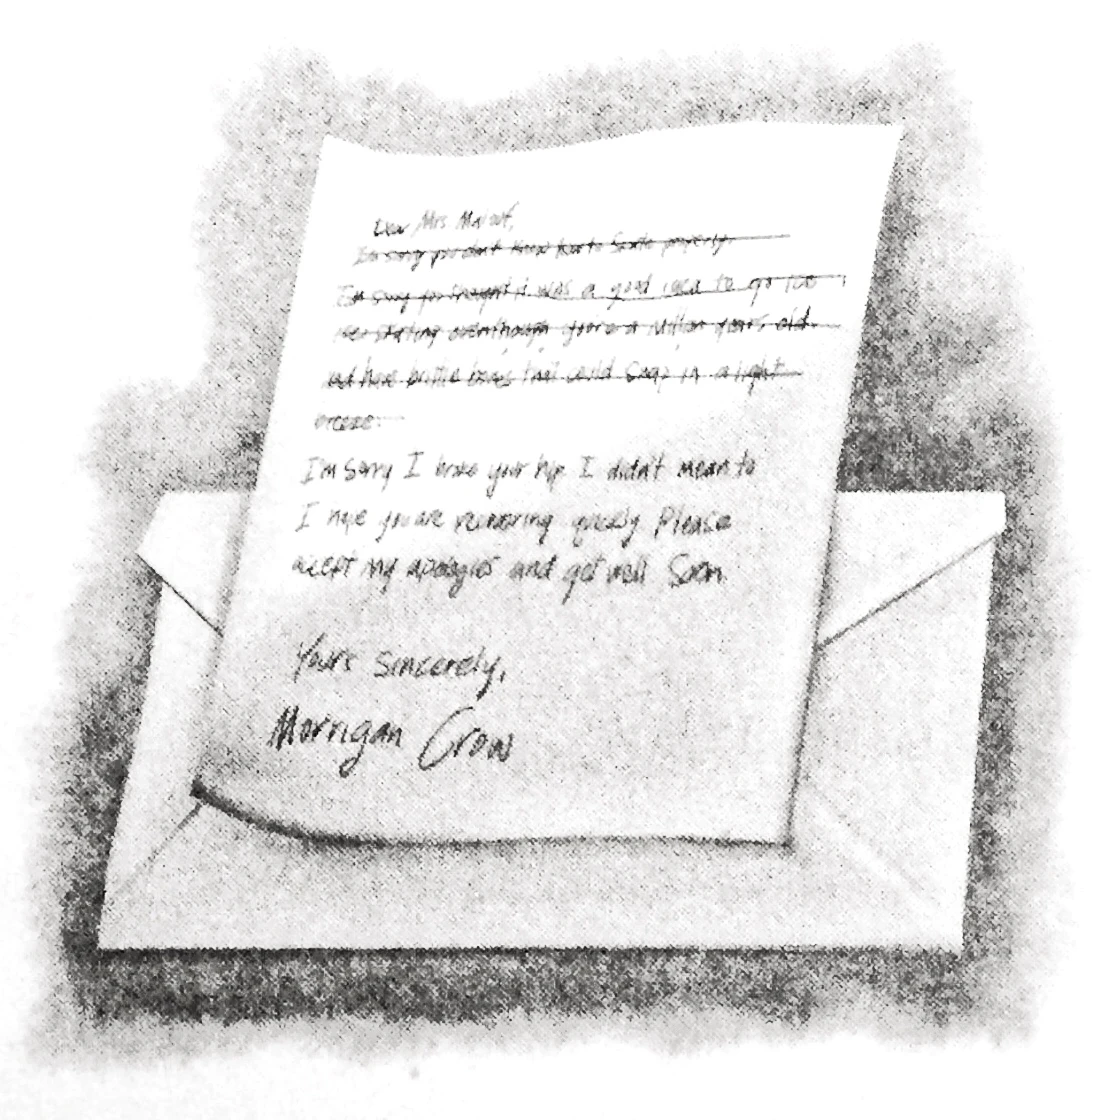 Dear Mrs Malouf,
I'm sorry you don't know how to Skate properly.
I'm sorry you thought it was a good idea to go ice
skating even though you're a million years old
and have brittle bones that could Snap in a light
breeze.
I'm Sorry I broke your hip. I didn't mean to
I hope you are recovering quickly Please
accept my apologies and get well Soon.
Yours Sincerely,
Morrigan Crow